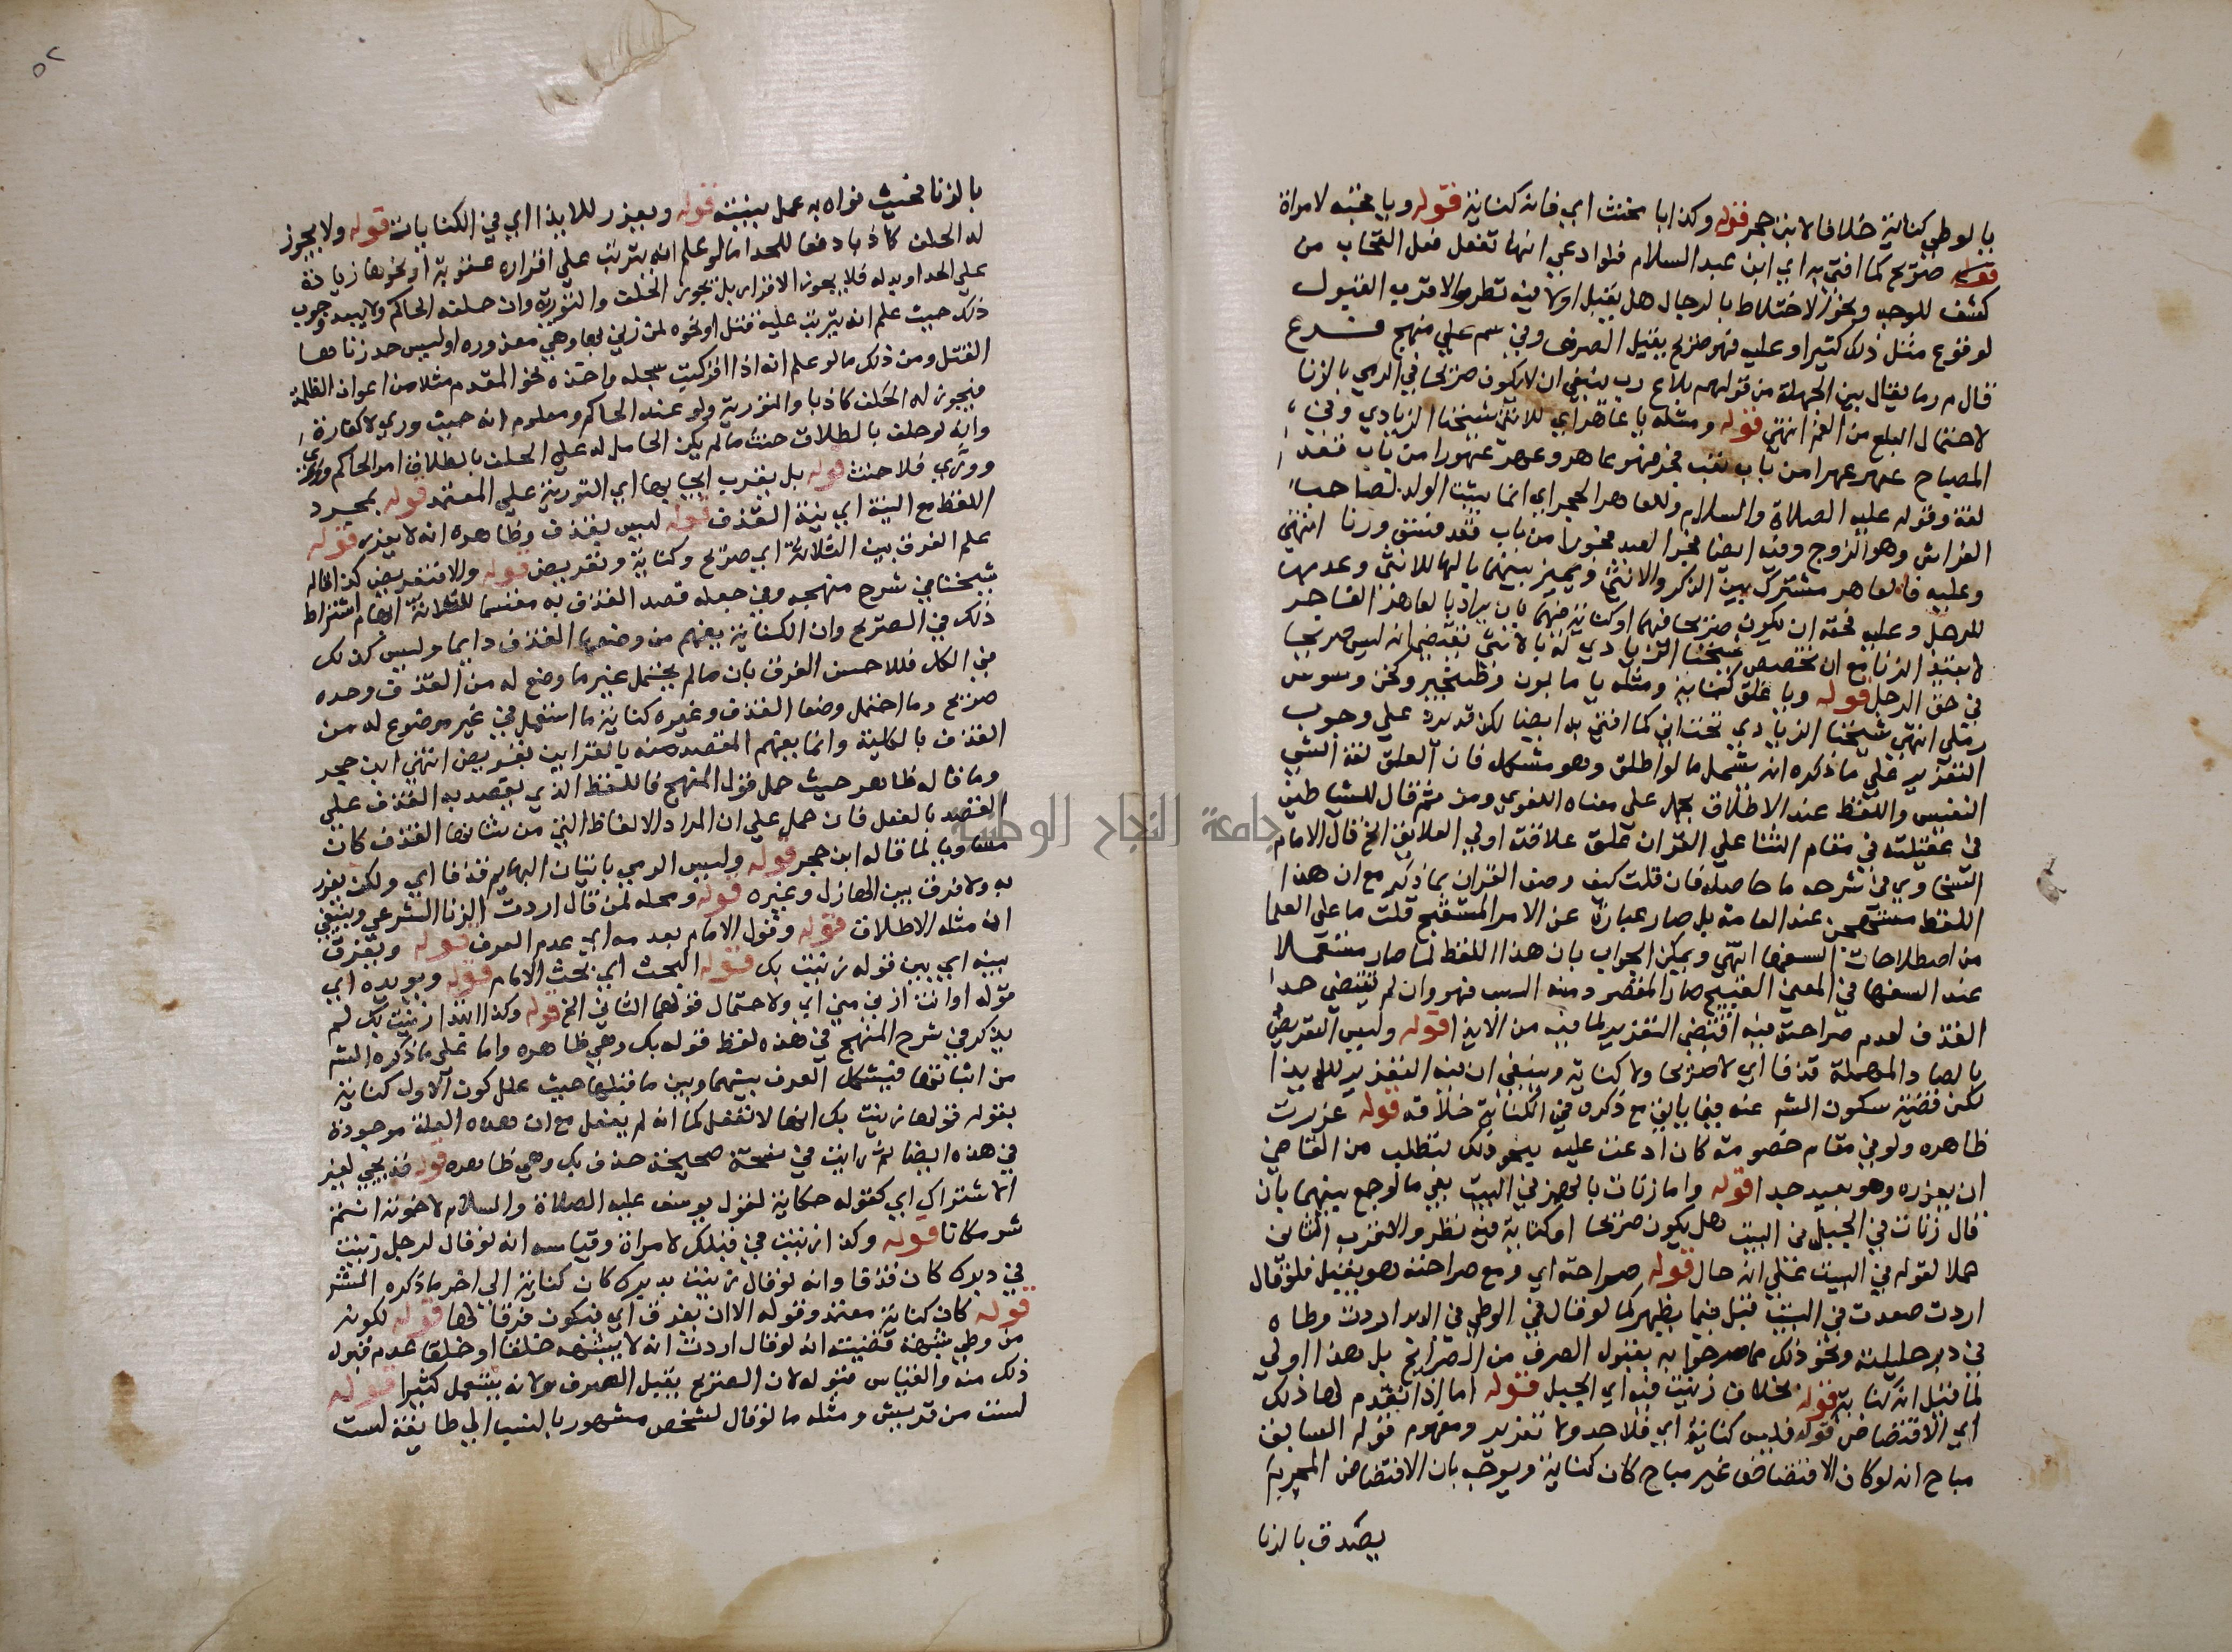 بالوطي كناية خلافا لابن حجر قوله وكذا يا مخنث اي فانه كناية قوله ويا قحبة لامراة
قوله صريح كما افتى به اي ابن عبد السلام فلو ادعى انها تفعل فعل القحاب من
كشف للوجه ونحو الاختلاط بالرجال هل يقبل اولا فيه نظر والاقرب القبول
لوقوع مثل ذلك كثيرا وعليه فهو صريح يقبل الصرف وفي سم على منهج فرع
قال م ر ما يقال بين الجهلة من قولهم بلاع زب ينبغي ان لا يكون صريحا في الرمي بالزنا
لاحتمال البلع من الفم انتهى قوله ومثله يا عاهر اي للانثى شيخنا الزيادي وفي
المصباح عهر عهرا من باب تعب فجر فهو عاهر وعهر عهورا من باب قعد
لغة وقوله عليه الصلاة والسلام وللعاهر الحجر اي انما يثبت الولد لصاحب
الفراش وهو الزوج وفيه ايضا فجر العبد فجورا من باب قعد فسق وزنا انتهى
وعليه فالعاهر مشترك بين الذكر والانثى ويميز بينهما بالها للانثى وعدمها
للرجل وعليه فحقه ان يكون صريحا فيهما او كناية فيهما بان يراد بالعاهر الفاجر
لا بقيد الزنا مع ان تخصيص شيخنا الزيادي له بالانثى يقتضي انه ليس صريحا
في حق الرجل قوله ويا علق كناية ومثله يا مابون وطنجير ونحن وسوس
رملي انتهى شيخنا الزيادي تحت ابن كما افتى به ايضا لكن قد يرد على وجوب
التعزير على ما ذكره انه يشمل ما لو اطلق وهو مشكل فان العلق لغة الشي
النفيس واللفظ عند الاطلاق يحمل على معناه اللغوي ومن ثم قال للشاطبي
في عقيلته في مقام الثنا على القران علق علاقته اولى العلائق الخ قال الامام
السخاوي في شرحه ما حاصله فان قلت كيف وصف القران بما ذكر مع ان هذا
اللفظ مستهجن عند العامة بل صار عبارة عن الامر المستقبح قلت ما على العلما
من اصطلاحات السفها انتهى ويمكن الجواب بان هذا اللفظ لما صار مستعملا
عند السفها في المعنى القبيح صار المقصود منه السب فهو وان لم يقتضي حد
القذف لعدم صراحة فيه اقتضى التعزير لما فيه من الايذا قوله وليس التعريض
بالصاد المهملة قذفا اي لا صريحا ولا كناية وينبغي ان فيه التعزير للايذا
لكن قضية سكون الشم عنه فيما ياتي مع ذكره في الكناية خلافه قوله عزرت
ظاهره ولو في مقام خصومة كان ادعت عليه بنحو ذلك بتطلب من القاضي
ان يعزره وهو بعيد جدا قوله واما زنات بالهمز في البيت بقي ما لو جمع بينهما بان
قال زنات في الجبل من البيت هل يكون صريحا او كناية فيه نظر والاقرب الثاني
حملا لقوله في البيت على انه حال قوله صراحته اي ومع صراحته هو يقبل فلو قال
اردت صعدت في البيت قبل فيما يظهر كما لو قال في الوطي في الدبر اردت وطاه
في دبر حليلته ونحو ذلك مما صرحوا به بقبول الصرف من الصرايح بل هذا اولى
لما قيل انه كناية قوله بخلاف زنيت فيه اي الجبل قوله اما اذا تقدم لها ذلك
اي الافتضاض قوله فليس كناية اي فلا حد ولا تعزير ومفهوم قوله السابق
مباح انه لو كان الافتضاض غير مباح كان كناية ويوجه بان الافتضاض المحرم
يصدق بالزنا
بالزنا فحيث نواه به عمل بنيته قوله ويعزر للايذا اي في الكنايات قوله ولا يجوز
له الحلف كاذبا دفعا للحد اما لو علم انه يترتب على اقراره عقوبة او نحوها زيادة
على الحد او بدله فلا يجوز الاقرار بل يجوز الحلف والتورية وان حلفه الحاكم ولا يبعد وجوب
ذلك حيث علم انه يترتب عليه قتل او نحوه لمن زنى بها وهي معذورة او ليس حد زناها
القتل ومن ذلك ما لو علم انه اذا اقر كتب سجله واخذه نحو المقدم مثلا من اعوان الظلمة
فيجوز له الحلف كاذبا والتورية ولو عند الحاكم ومعلوم انه حيث وري لا كفارة
وانه لو حلف بالطلاق حنث ما لم يكن الحامل له على الحلف بالطلاق امر الحاكم
ووري فلا حنث قوله بل يقرب ايجابها اي التورية على المعتمد قوله بمجرد
اللفظ مع النية اي نية القذف قوله ليس بقذف وظاهره انه لا يعزر قوله
علم الفرق بين الثلاثة اي صريح وكناية وتعريض قوله والا فتعريض كذا قاله
شيخنا في شرح منهجه وفي جعله قصد القذف به مقسما للثلاثة ايهام اشتراط
ذلك في الصريح وان الكناية يفهم من وضعها القذف دايما وليس كذلك
في الكل فللاحسن الفرق بان ما لم يحتمل غير ما وضع له من القذف وحده
صريح وما احتمل وضعا القذف وغيره كناية ما استعمل في غير موضوع له من
القذف بالكلية وانما يفهم المقصد منه بالقراين تعريض انتهى ابن حجر
وما قاله ظاهر حيث حمل قول المنهج فاللفظ الذي يقصد به القذف على
القصد بالفعل فان حمل على ان المراد الالفاظ التي من شانها القذف كان
مساويا لما قاله ابن حجر قوله وليس الرمي باتيان البهايم قذفا اي ولكن يعزر
به ولا فرق بين الهازل وغيره قوله ومحله لمن قال اردت الزنا الشرعي وينبغي
ان مثله الاطلاق قوله وقول الامام بعدمه اي عدم الفرق قوله ويفرق
بينه اي بين قوله زنيت بك قوله البحث اي بحث الامام قوله ويويده اي
قوله او انت ازنى مني اي ولاحتمال قولها الثاني الخ قوله وكذا ايذا زنيت بك لم
يذكر في شرح المنهج في هذه لفظ قوله بك وهي ظاهره واما على ما ذكره الشم
من اثباتها فيشكل الفرق بينهما وبين ما قبلها حيث علل كون الاول كناية
بقوله قولها زنيت بك انها لا تفعل كما انه لم يفعل مع ان هذه العلة موجودة
في هذه ايضا ثم رايت في نسخة صحيحة حذف بك وهي ظاهره قوله قد يجي لغير
الاشتراك اي كقوله حكاية لقول يوسف عليه الصلاة والسلام لاخوته انتم
شر مكانا قوله وكذا زنيت في قبلك لامراة وقياسه انه لو قال لرجل زنيت
في دبرك كان قذفا وانه لو قال زنيت بدبرك كان كناية الى اخر ما ذكره الشم
قوله كان كناية معتمد وقوله الا ان يفرق اي فيكون قذفا لها قوله لكونه
من وطي شبهة قضيته انه لو قال اردت انه لا يشبهه خلقا او خلقا عدم قبول
ذلك منه والقياس قبوله لان الصريح يقبل الصرف ولانه يستعمل كثيرا قوله
لست من قريش ومثله ما لو قال لشخص مشهور بالنسب الى طايفة لست
جامعة النجاح الوطنية
٥٢